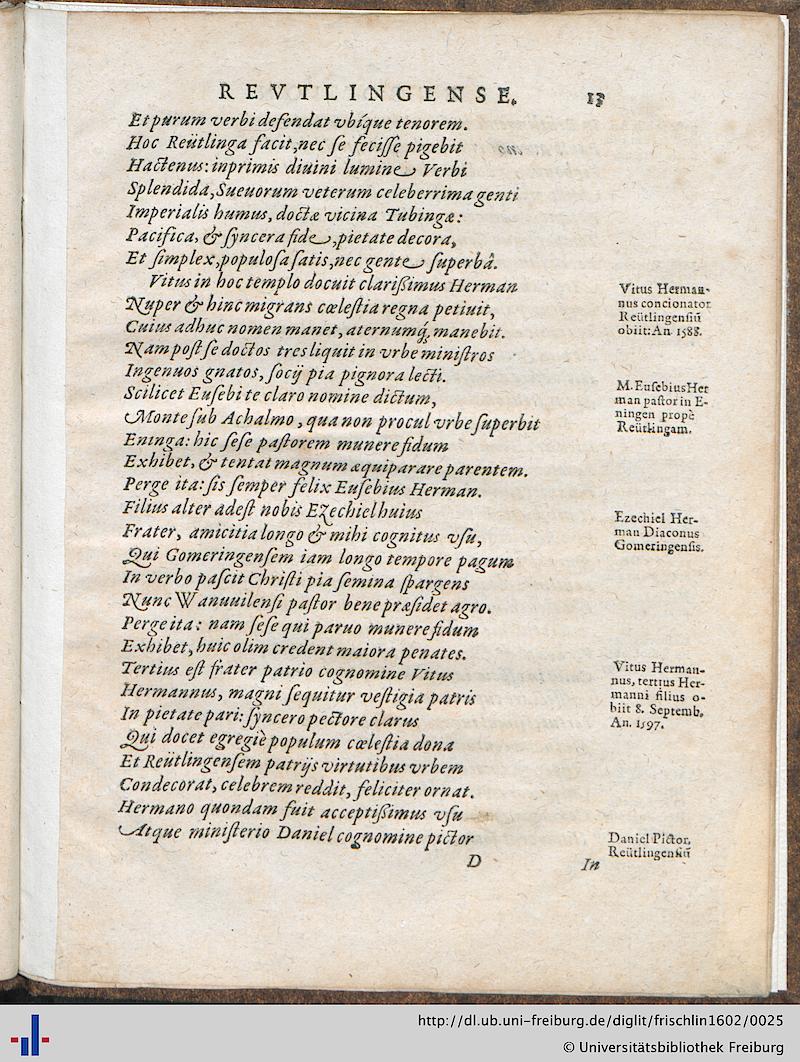 REVTLINGENSE. 13
Et purum verbi defendat vbíque tenorem.
Hoc Reütlinga facit, nec se fecisse pigebit
Hactenus: inprimis diuini lumine Verbi
Splendida, Sueuorum veterum celeberrima genti
Imperialis humus, doctæ vicina Tubingæ:
Pacifica, & syncera fide, pietate decora,
Et simplex, populosa satis, nec gente superbâ.
Vitus in hoc templo docuit clarißimus Herman
Nuper & hinc migrans cœlestia regna petiuit,
Vitus Herman-
nus concionator
Reütlingensiū
obiit: An. 1588.
Cuius adhuc nomen manet, aternumq́; manebit.
Nam post se doctos tres liquit in vrbe ministros
Ingenuos gnatos, socij pia pignora lecti.
Scilicet Eusebi te claro nomine dictum,
M. Eusebius Her
man pastor in E-
ningen propè
Reütlingam.
Monte sub Achalmo, qua non procul vrbe superbit
Eninga: hic sese pastorem munere fidum
Exhibet, & tentat magnum æquiparare parentem.
Perge ita: sis semper felix Eusebius Herman.
Filius alter adest nobis Ezechiel huius
Frater, amicitia longo & mihi cognitus vsu,
Ezechiel Her-
man Diaconus
Gomeringensis.
Qui Gomeringensem iam longo tempore pagum
In verbo pascit Christi pia semina spargens
Nunc Wanuuilensi pastor bene præsidet agro.
Perge ita: nam sese qui paruo munere fidum
Exhibet, huic olim credent maiora penates.
Tertius est frater patrio cognomine Vitus
Hermannus, magni sequitur vestigia patris
Vitus Herman-
nus, tertius Her-
manni filius o-
biit 8. Septemb.
An. 1597.
In pietate pari: syncero pectore clarus
Qui docet egregiè populum cœlestia dona
Et Reütlingensem patrijs virtutibus vrbem
Condecorat, celebrem reddit, feliciter ornat.
Hermano quondam fuit acceptißimus vsu
Atque ministerio Daniel cognomine pictor
Daniel Pictor,
Reütlingensiū
D In
http://dl.ub.uni-freiburg.de/diglit/frischlin1602/0025
© Universitätsbibliothek Freiburg